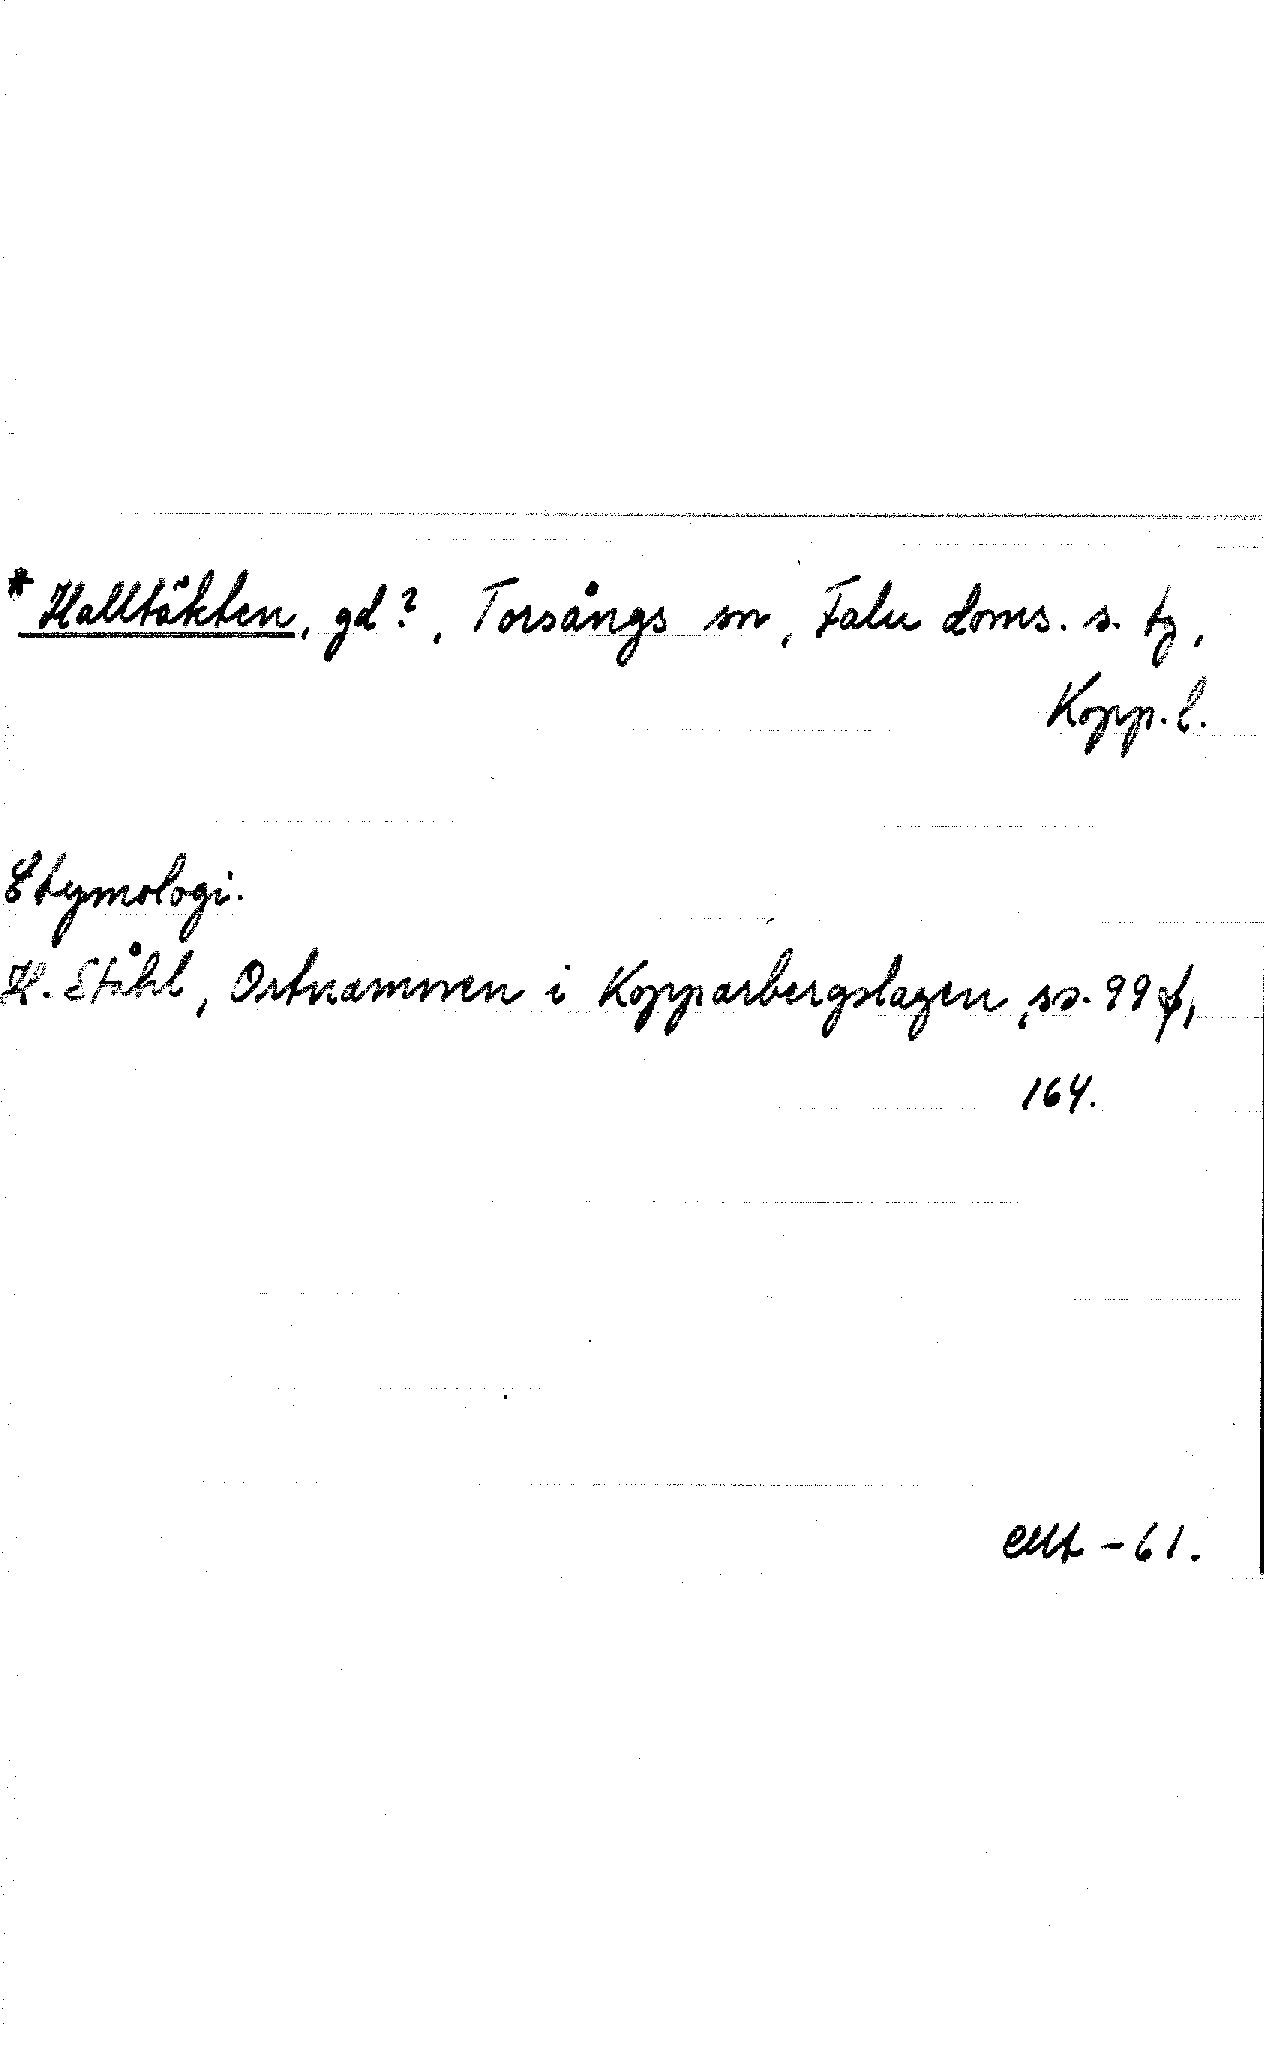 * Halltäkten, gd?, Torsångs sn, Falu doms. s. tg,
Kopp. l.
Etymologi.
H. Ståhl, Ortnamnen i Kopparbergslagen, ss. 99 f,
164.
-61.